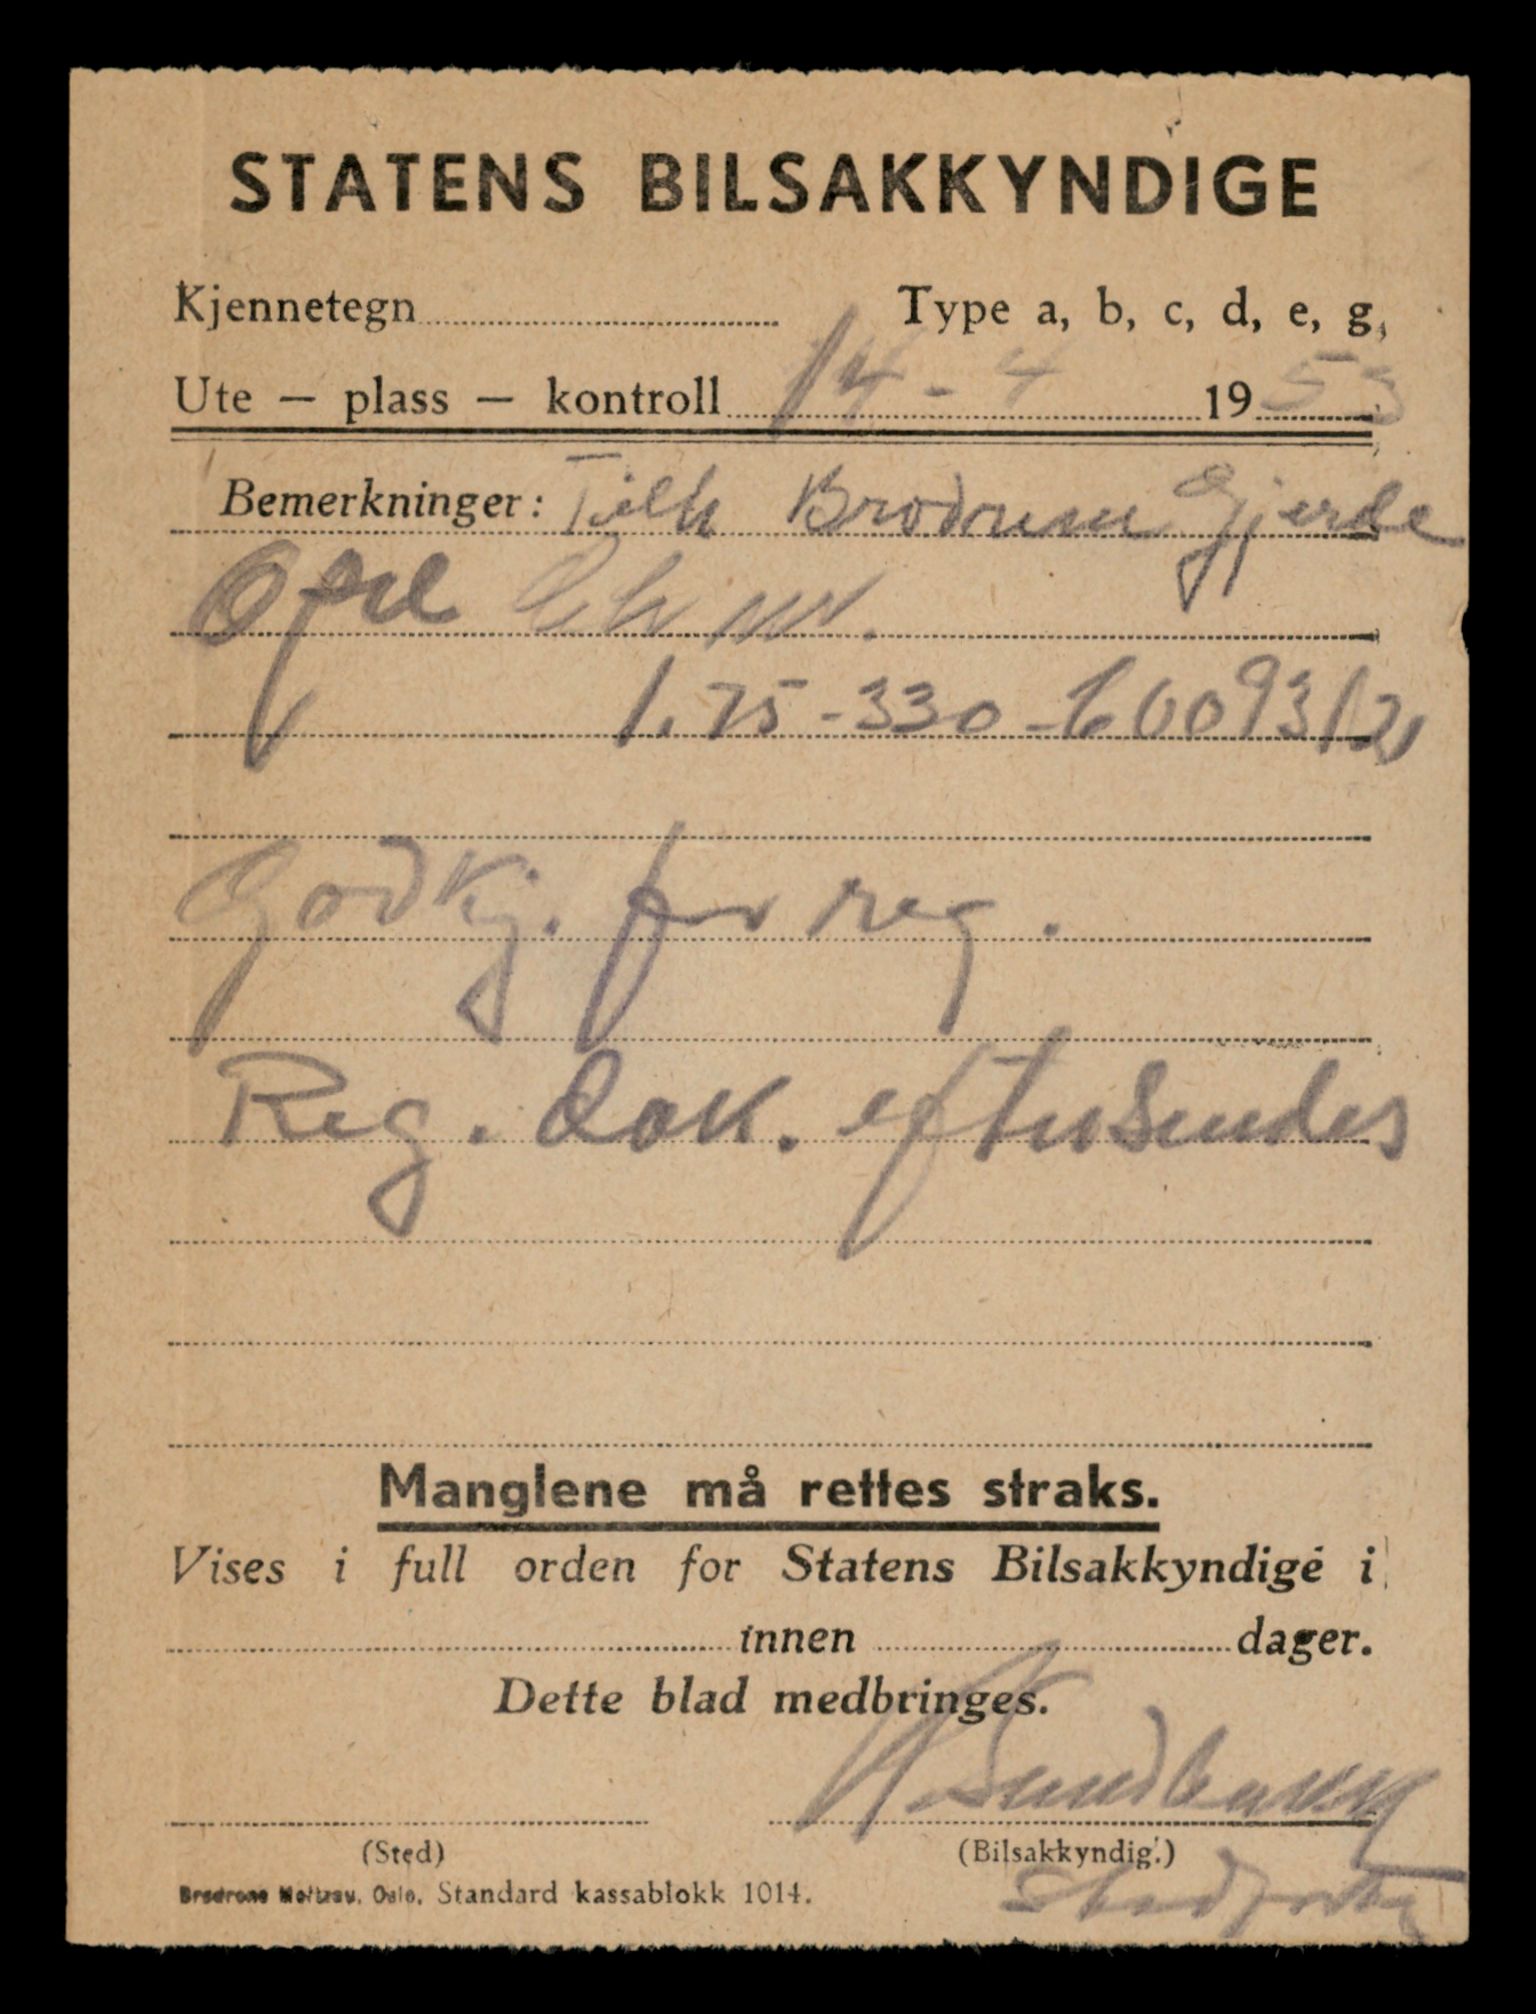 STATENS BILSAKKYNDIGE
Kjennetegn Type a, b, c, d, e, g,
Ute — plass — kontroll 14 - 4 1953
Bemerkninger: Tilh Brødrene Gjerde
Opel Ch nr.
1.75-330-6009312
Godkj. for reg.
Reg. dok. eftersendes
Manglene må rettes straks.
Vises i full orden for Statens Bilsakkyndige i
innen dager.
Dette blad medbringes.
(Sted) (Bilsakkyndig.)
Brødrene Oslo. Standard kassablokk 1014.